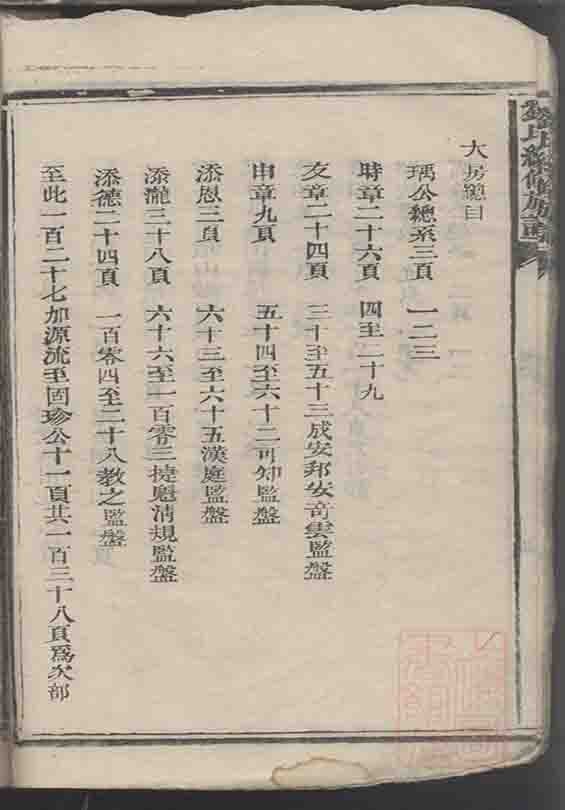 大房總目
瑀公總系三頁 一二三
時章二十六頁 四至二十九
友章二十四頁 三十至五十三成安邦安奇雲監盤
申章九頁 五十四至六十二可知監盤
添恩三頁 六十三至六十五漢庭監盤
添瀧三十八頁 六十六至一百零三捷魁清規監盤
添德二十四頁 一百零四至二十八教之監盤
至此一百二十七加源流至固珍公十一頁共一百三十八頁爲次部